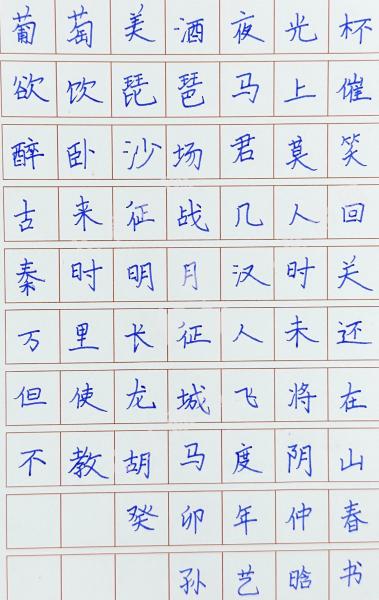 葡萄美酒夜光杯
欲饮琵琶马上催
醉卧沙场君莫笑
古来征战几人回
秦时明月汉时关
万里长征人未还
但使龙城飞将在
不教胡马度阴山
癸卯年仲春
孙艺晗书